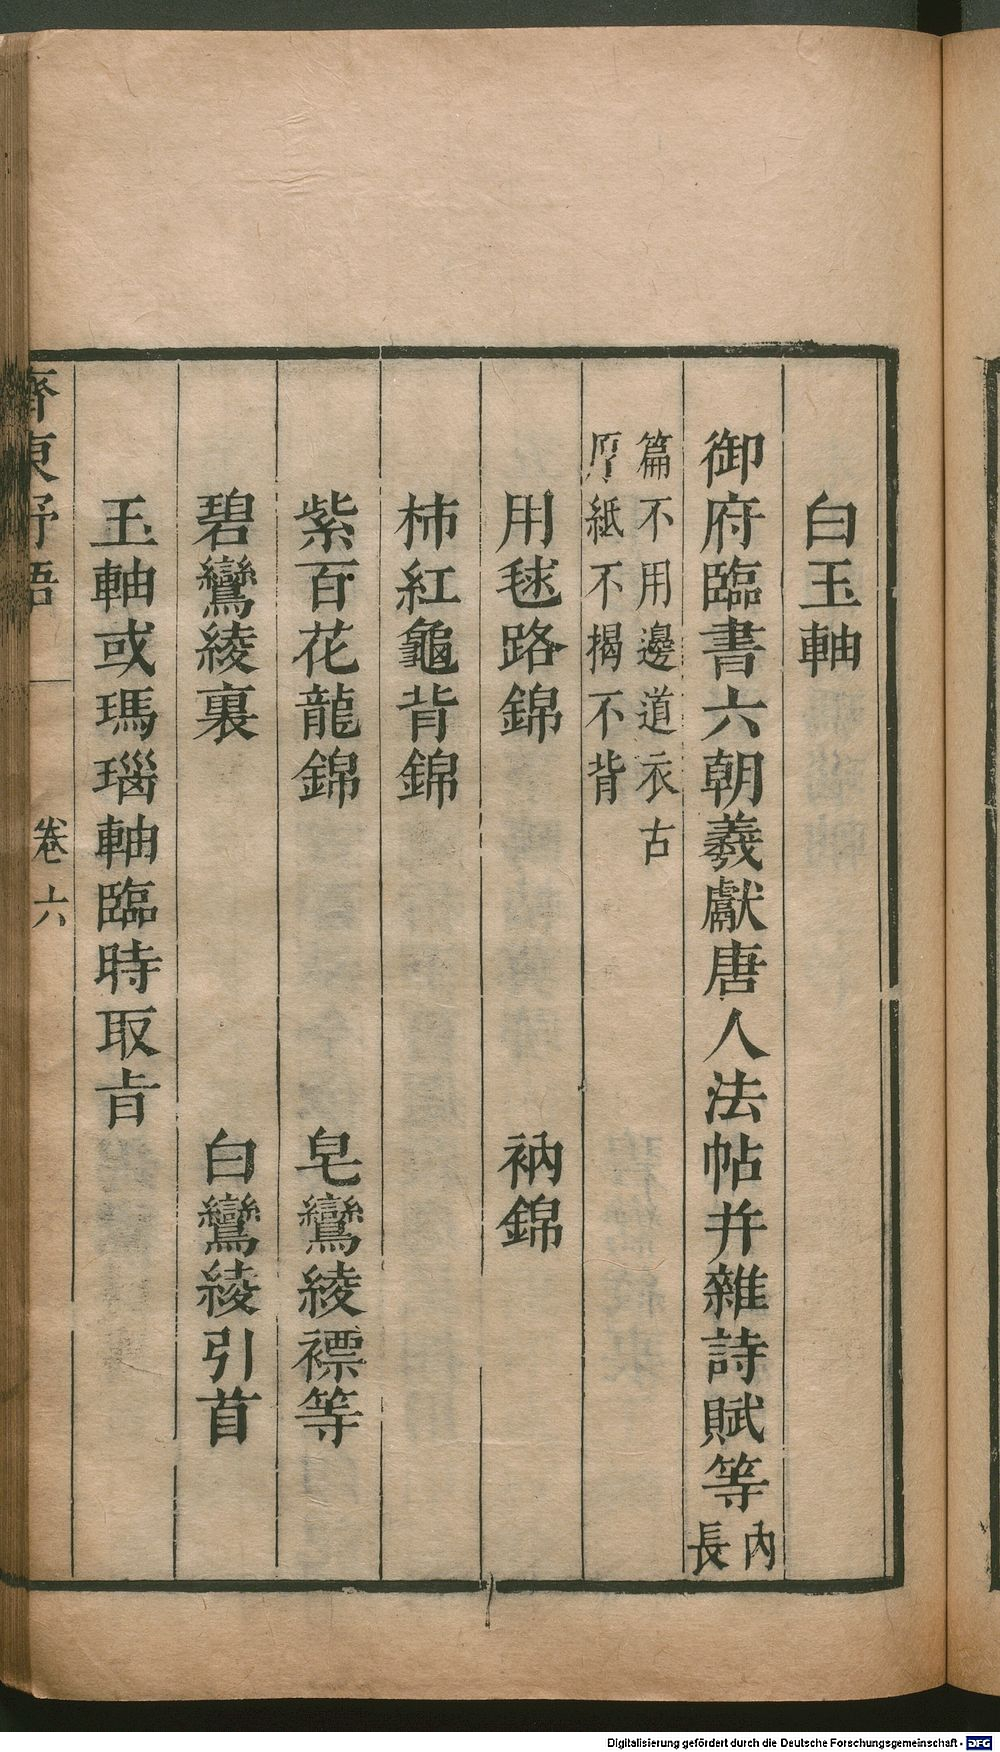 白玉軸
御府臨書六朝羲獻唐人法帖并雜詩賦等内長
篇不用邊道衣古
厚紙不揭不背
用毬路錦 衲錦
柿紅龜背錦
紫百花龍錦 皂鸞綾褾等
碧鸞綾裏 白鸞綾引首
玉軸或瑪瑙軸臨時取㫖
齊東野語
卷六
Digitalisierung gefördert durch die Deutsche Forschungsgemeinschaft - DFG